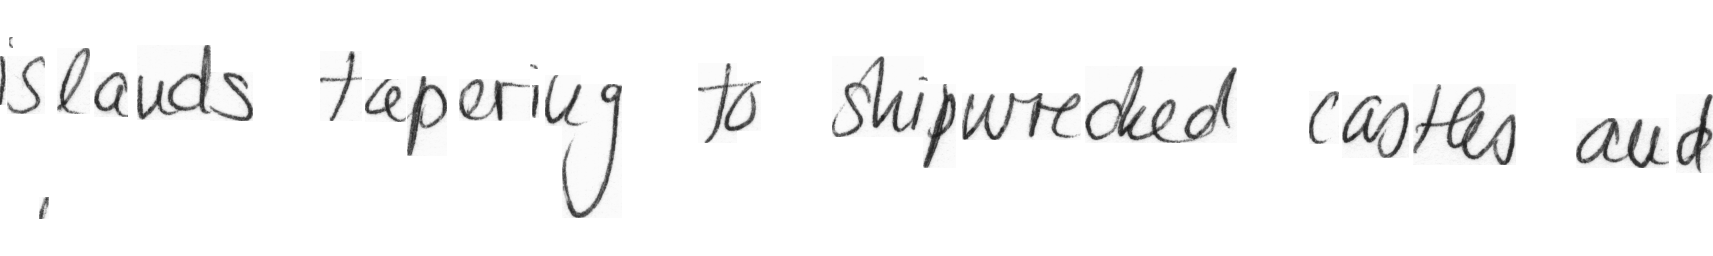 islands tapering to shipwrecked castles and